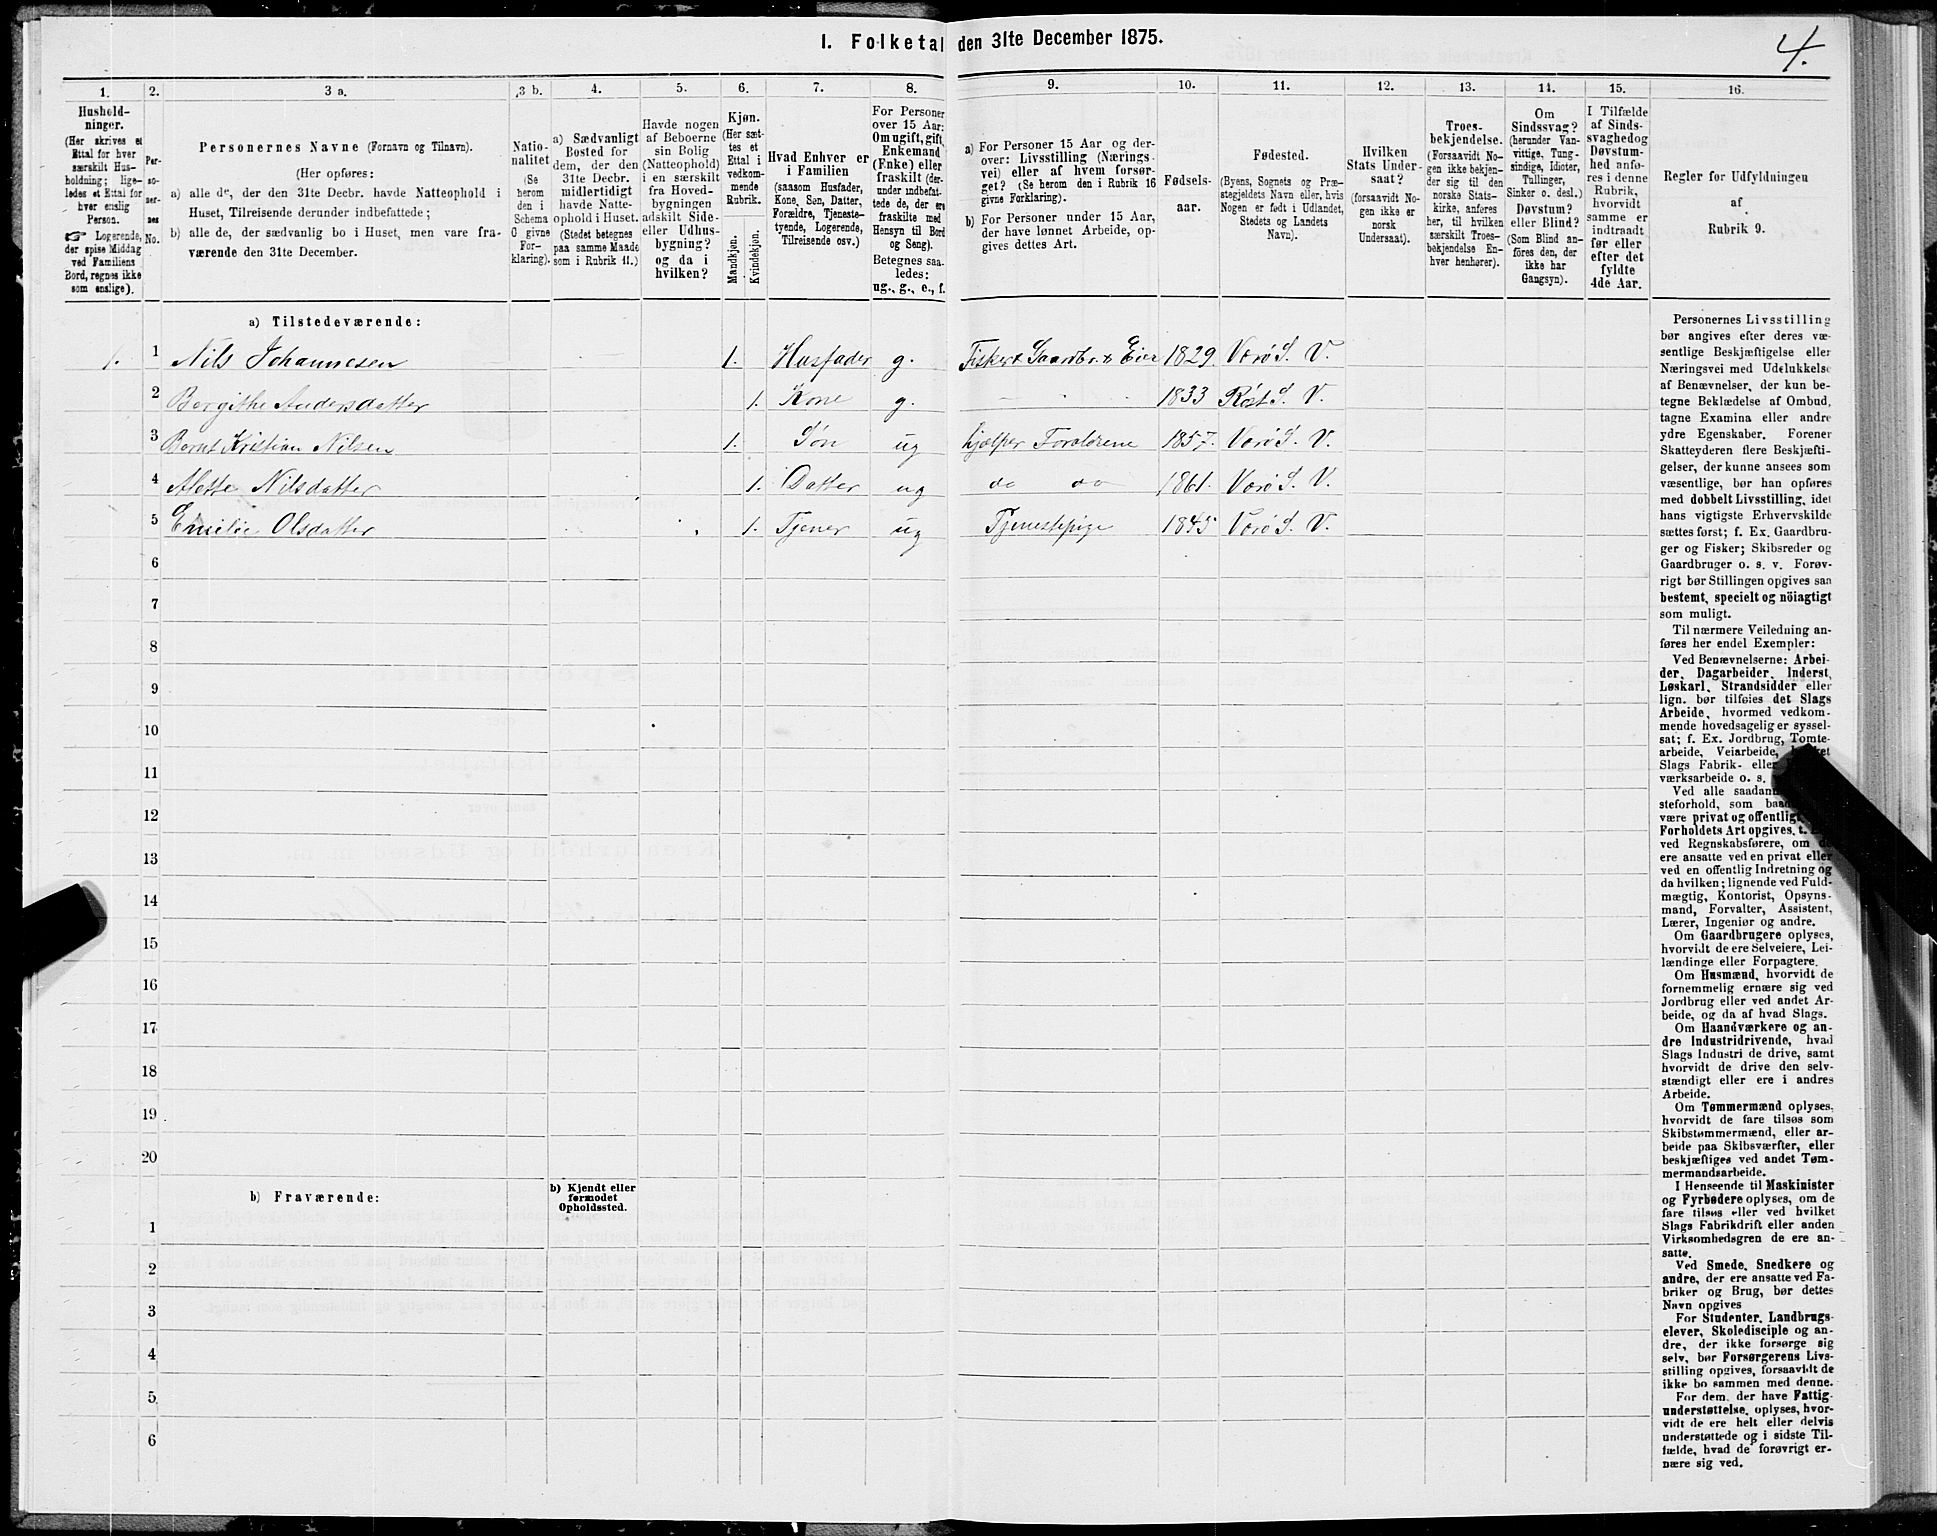 I. Folketal den 31te December 1875.
4.
1.
2.
3 a.
3 b.
4.
5.
6.
7.
8.
9.
10.
11.
12.
13.
14.
15.
16.
Hushold-
ninger.
(Her skrives et
Ettal for hver
særskilt Hus-
holdning; lige-
ledes et Ettal for
hver enslig
Person.
☞ Logerende,
der spise Middag
ved Familiens
Bord, regnes ikke
som enslige).
Per-
so-
ner-
nes
No.
Personernes Navne (Fornavn og Tilnavn).
(Her opføres:
a) alle de, der den 31te Decbr. havde Natteophold i
Huset, Tilreisende derunder indbefattede;
b) alle de, der sædvanlig bo i Huset, men vare fra-
værende den 31te December.
Natio-
nalitet
(Se
herom
den i
Schema
O givne
For-
klaring).
a) Sædvanligt
Bosted for
dem, der den
31te Decbr.
midlertidigt
havde Natte-
ophold i Huset.
(Stedet betegnes
paa samme Maade
som i Rubrik 11.)
Havde nogen
af Beboerne
sin Bolig
(Natteophold)
i en særskilt
fra Hoved-
bygningen
adskilt Side-
eller Udhus-
bygning?
og da i
hvilken?
Kjøn.
(Her sæt-
tes et
Ettal i
vedkom-
mende
Rubrik.
Mandkjøn.
Kvindekjøn.
Hvad Enhver er
i Familien
(saasom Husfader,
Kone, Søn, Datter,
Forældre, Tjeneste-
tyende, Logerende,
Tilreisende osv.)
For Personer
over 15 Aar:
Om ugift, gift,
Enkemand
(Enke) eller
fraskilt (der-
under indbefat-
tede de, der ere
fraskilte med
Hensyn til Bord
og Seng).
Betegnes saa-
ledes:
ug., g., e., f.
a) For Personer 15 Aar og der-
over: Livsstilling (Nærings-
vei) eller af hvem forsør-
get? (Se herom den i Rubrik 16
givne Forklaring).
b) For Personer under 15 Aar,
der have lønnet Arbeide, op-
gives dettes Art.
Fødsels-
aar.
Fødested.
(Byens, Sognets og Præ-
stegjeldets Navn eller, hvis
Nogen er født i Udlandet,
Stedets og Landets
Navn).
Hvilken
Stats Under-
saat?
(forsaavidt No-
gen ikke er
norsk
Undersaat).
Troes-
bekjendelse.
(Forsaavidt No-
gen ikke bekjen-
der sig til den
norske Stats-
kirke, anføres
her, til hvilken
særskilt Troes-
bekjendelse En-
hver henhører).
Om
Sindssvag?
(herunder Van-
vittige, Tung-
sindige, Idioter,
Tullinger,
Sinker o. desl.)
Døvstum?
eller Blind?
(Som Blind an-
føres den, der
ikke har
Gangsyn).
I Tilfælde
af Sinds-
svaghedog
Døvstum-
hed anfø-
res i denne
Rubrik,
hvorvidt
samme er
indtraadt
før eller
efter det
fyldte
4de Aar.
Regler for Udfyldningen
af
Rubrik 9.
a) Tilstedeværende:
1. 1 Nils Johannesen 1. Husfader g. Fisker & Gaardbr. & Eier 1829. Værø S. V.
2 Bergithe Andersdatter 1. Kone g. 1833 Røst S. V.
3 Bernt Kristian Nilsen 1. Søn ug hjælper Forældrene 1857. Værø S. V.
4 Mette Nilsdatter 1. Datter ug do do 1861. Værø S. V.
5 Emilie Olsdatter 1. Tjener ug Tjenestepige 1845 Værø S. V.
6
7
8
9
10
11
12
13
14
15
16
17
18
19
20
b) Fraværende:
b) Kjendt eller
formodet
Opholdssted.
1
2
3
4
5
6
Personernes Livsstilling
bør angives efter deres væ-
sentlige Beskjæftigelse eller
Næringsvei med Udelukkelse
af Benævnelser, der kun be-
tegne Beklædelse af Ombud,
tagne Examina eller andre
ydre Egenskaber. Forener
Skatteyderen flere Beskjæfti-
gelser, der kunne ansees som
væsentlige, bør han opføres
med dobbelt Livsstilling, idet
hans vigtigste Erhvervskilde
sættes først; f. Ex. Gaardbru-
ger og Fisker; Skibsreder og
Gaardbruger o. s. v. Forøv-
rigt bør Stillingen opgives saa
bestemt, specielt og nöiagtigt
som muligt.
Til nærmere Veiledning an-
føres her endel Exempler:
Ved Benævnelserne: Arbei-
der, Dagarbeider, Inderst,
Løskarl, Strandsidder eller
lign. bør tilføies det Slags
Arbeide, hvormed vedkom-
mende hovedsagelig er syssel-
sat; f. Ex. Jordbrug, Tomte-
arbeide, Veiarbeide,
Slags Fabrik- eller
værksarbeide o. s.
Ved alle saadan
steforhold, som
være privat og offentlig
Forholdets Art opgives, t.
ved Regnskabsførere, om
ere ansatte ved en privat eller
ved en offentlig Indretning og
da hvilken; lignende ved Fuld-
mægtig, Kontorist, Opsyns-
mand, Forvalter, Assistent,
Lærer, Ingeniør og andre.
Om Gaardbrugere oplyses,
hvorvidt de ere Selveiere, Lei-
lændinge eller Forpagtere.
Om Husmænd, hvorvidt de
fornemmelig ernære sig ved
Jordbrug eller ved andet Ar-
beide, og da af hvad Slags.
Om Haandværkere og an-
dre Industridrivende, hvad
Slags Industri de drive, samt
hvorvidt de drive den selv-
stændigt eller ere i andres
Arbeide.
Om Tømmermænd oplyses,
hvorvidt de fare tilsøs som
Skibstømmermænd, eller ar-
beide paa Skibsværfter, eller
beskjæftiges ved andet Tøm-
mermandsarbeide.
I Henseende til Maskinister
og Fyrbødere oplyses, om de
fare tilsøs eller ved hvilket
Slags Fabrikdrift eller anden
Virksomhedsgren de ere an-
satte.
Ved Smede, Snedkere og
andre, der ere ansatte ved Fa-
briker og Brug, bør dettes
Navn opgives
For Studenter, Landbrugs-
elever, Skoledisciple og an-
dre, der ikke forsørge sig
selv, bør Forsørgerens Livs-
stilling opgives, forsaavidt de
ikke bo sammen med denne.
For dem, der have Fattig-
understøttelse, oplyses, hvor-
vidt de ere helt eller delvis
understøttede og i sidste Til-
fælde, hvad de forøvrigt er-
nære sig ved.